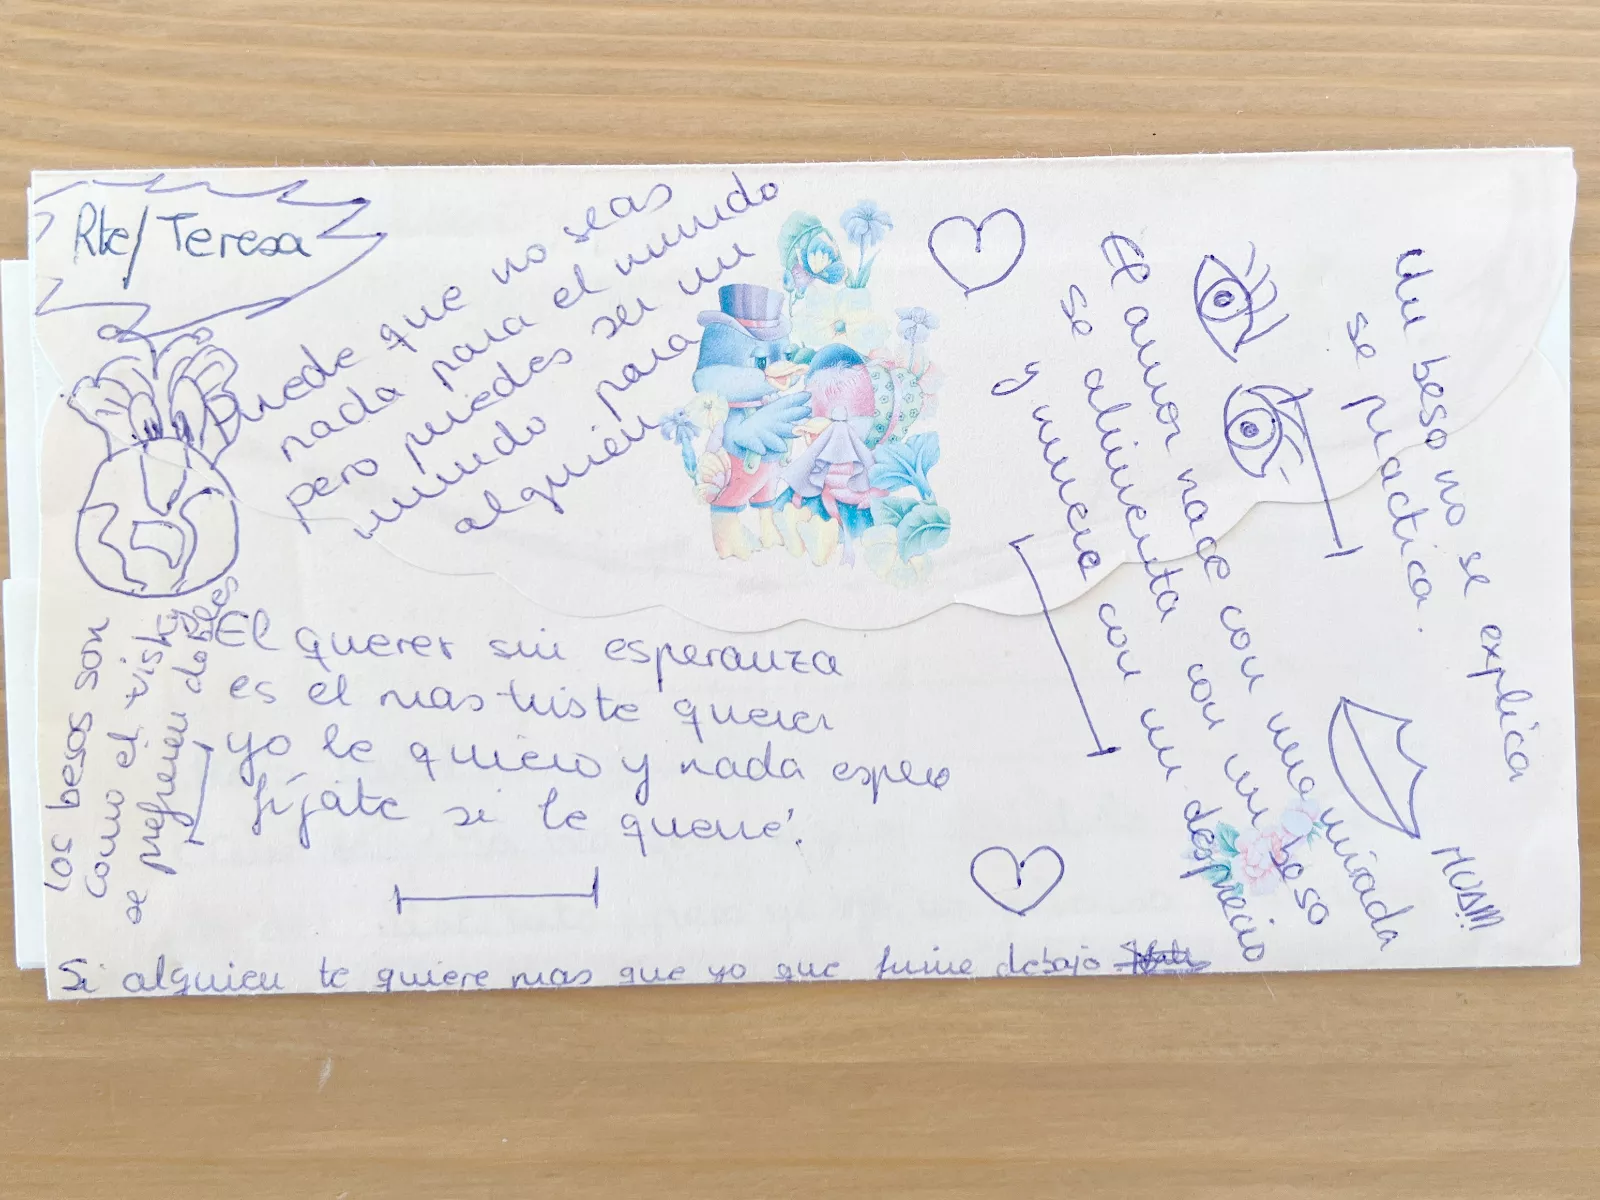 Rte/ Teresa
Puede que no seas
nada para el mundo
pero puedes ser un
mundo para
alguien
El amor nace con una mirada
se alimenta con un beso
y muere con un desprecio
Un beso no se explica
se practica.
MUA!!!
los besos son
como el visky
se prefieren dobles
El querer sin esperanza
es el mas triste querer
yo te quiero y nada espero
fíjate si te querré.
Si alguien te quiere mas que yo que firme debajo